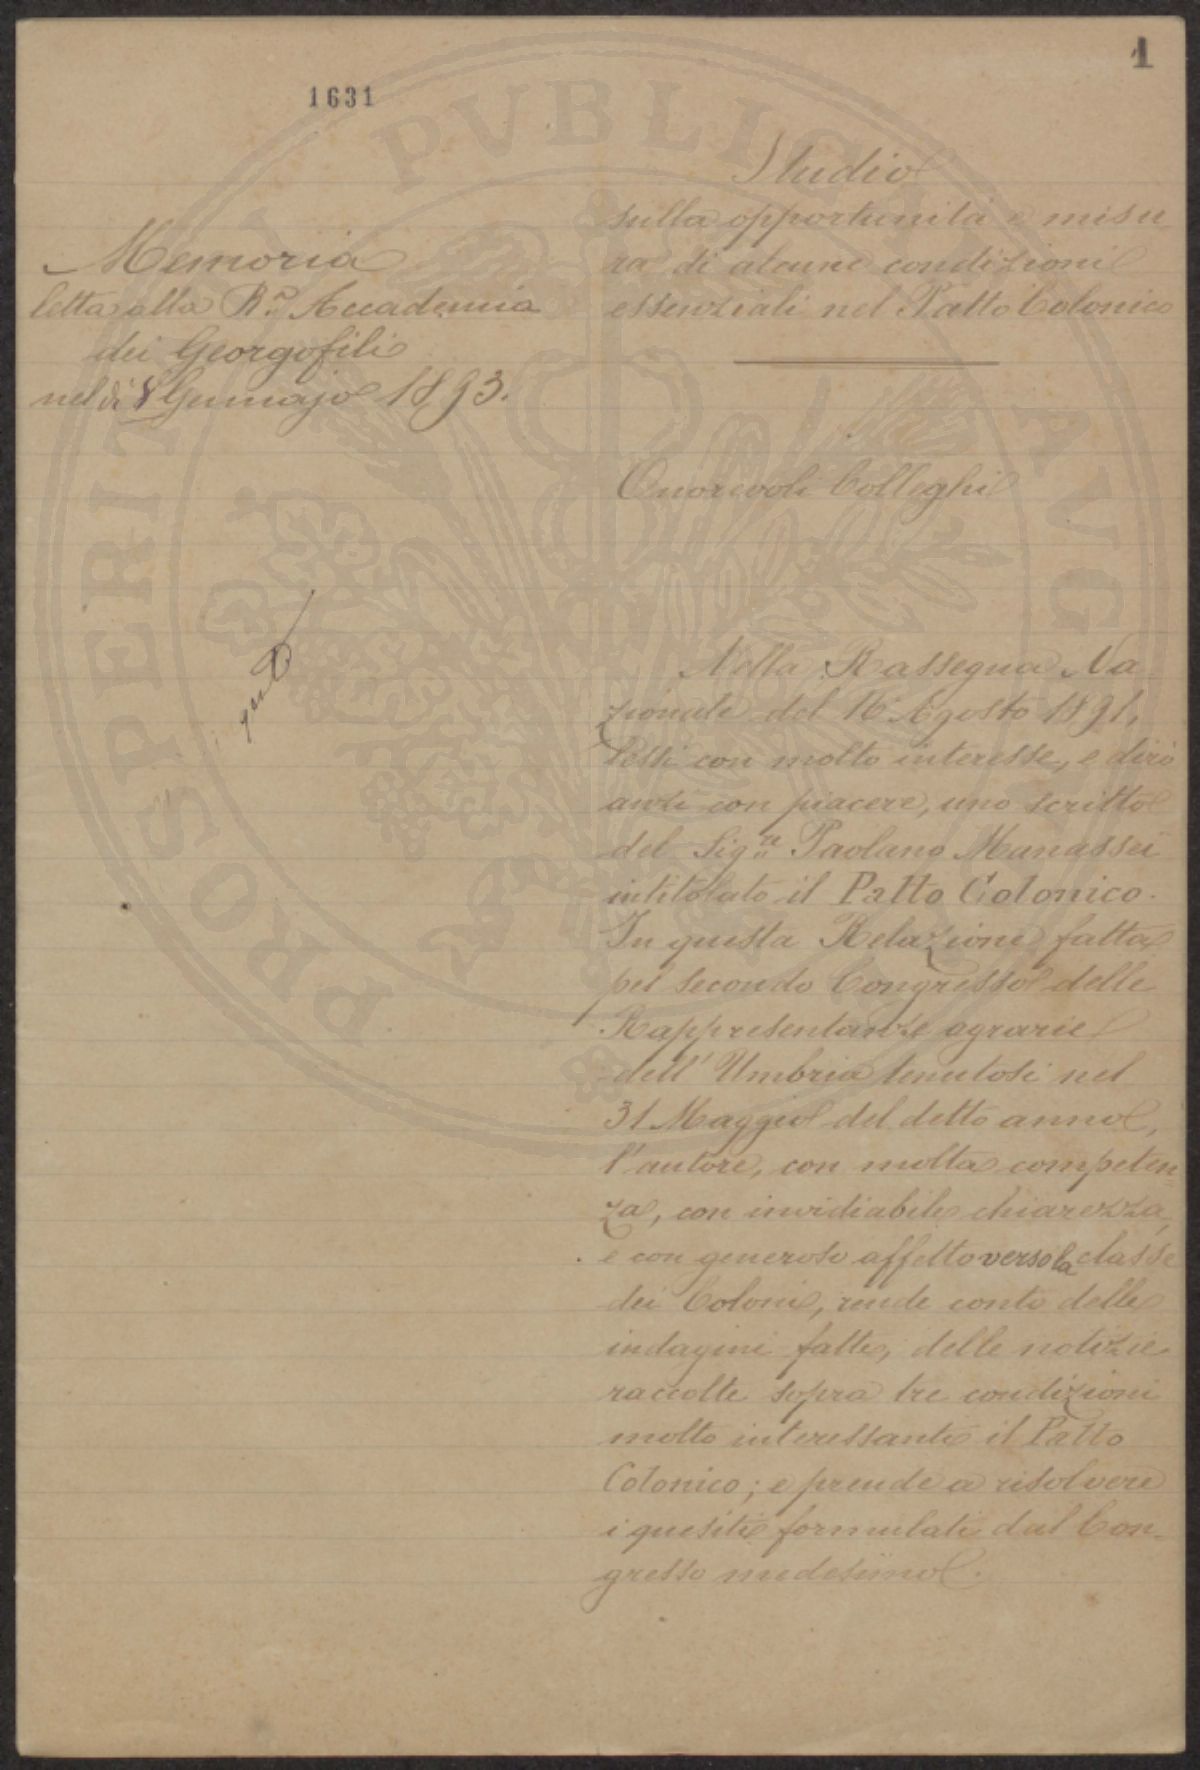 1
1631
Memoria
letta alla R.ª Accademia
dei Georgofili
nel dì 8 Gennajo 1893.
Studio
sulla opportunità e misu
ra di alcune condizioni
essenziali nel Patto Colonico
Onorevoli Colleghi
Nella Rassegna Na
zionale del 16 Agosto 1891,
lessi con molto interesse, e dirò
anzi con piacere, uno scritto
del Sig.re Paolano Manassei
intitolato il Patto Colonico.
In questa Relazione fatta
pel secondo Congresso delle
Rappresentanze agrarie
dell'Umbria tenutosi nel
31 Maggio del detto anno,
l'autore, con molta competen
za, con invidiabile chiarezza,
e con generoso affetto verso la classe
dei Coloni, rende conto delle
indagini fatte, delle notizie
raccolte sopra tre condizioni
molto interessanti il Patto
Colonico; e prende a risolvere
i quesiti formulati dal Con-
gresso medesimo.
PROSPERITATI PVBLICAE AVGENDAE